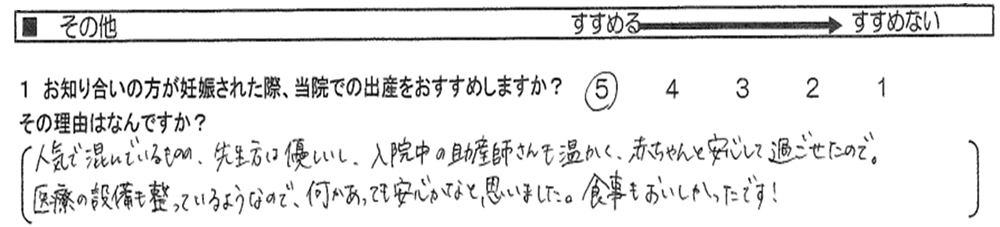 ■ その他 すすめる → すすめない
1 お知り合いの方が妊娠された際、当院での出産をおすすめしますか? 5 4 3 2 1
その理由はなんですか?
人気で混んでいるものの、先生方は優しいし、入院中の助産師さんも温かく、赤ちゃんと安心して過ごせたので。
医療の設備も整っているようなので、何かあっても安心かなと思いました。食事もおいしかったです!